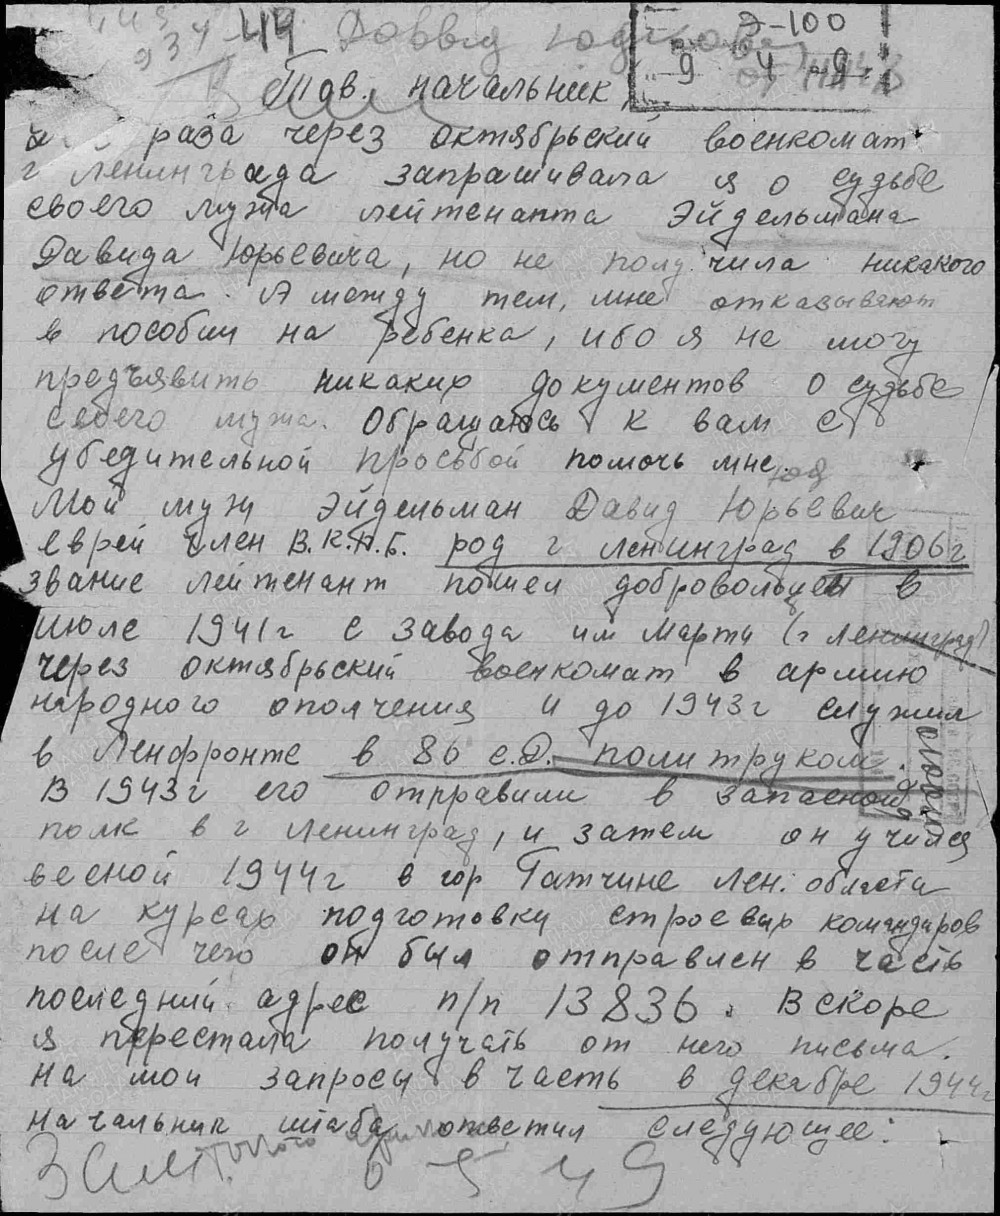 934
44 Давид
Э-100
9 4 9
Тов. начальник,
раза через октябрьский военкомат
г Ленинграда запрашивала я о судьбе
своего мужа лейтенанта Эйдельмана
Давида Юрьевича, но не получила никакого
ответа. А между тем, мне отказывают
в пособии на ребенка, ибо я не могу
предъявить никаких документов о судьбе
своего мужа. Обращаюсь к вам с
убедительной просьбой помочь мне.
Мой муж Эйдельман Давид Юрьевич
еврей член В.К.П.Б. род г Ленинград в 1906г
звание лейтенант пошел добровольцем в
июле 1941г с завода им Марти (г Ленинград)
через октябрьский военкомат в армию
народного ополчения и до 1943г служил
в Ленфронте в 86 с.д. политруком.
В 1943г его отправили в запасной
полк в г Ленинград, и затем он учился
весной 1944г в гор Гатчине Лен. области
на курсах подготовки строевых командиров
после чего он был отправлен в часть
последний адрес п/п 13836. Вскоре
я перестала получать от него письма.
На мои запросы в часть в декабре 1944г
начальник штаба ответил следующее: